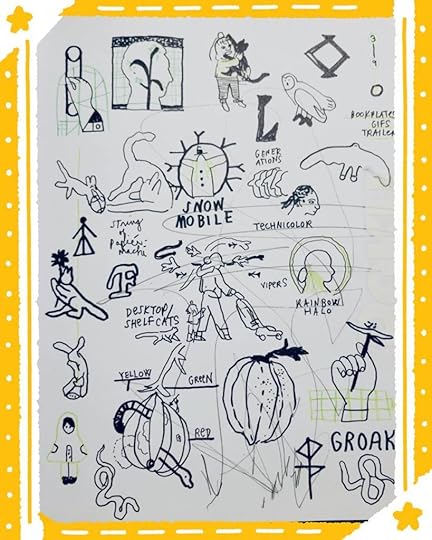 3
1
9
BOOKPLATES
GIFS
TRAILER
L
GENER
ATIONS
SNOW
MOBILE
TECHNICOLOR
STRING
OF
PAPIER-
MACHÉ
VIPERS
RAINBOW
HALO
DESKTOP/
SHELFCATS
YELLOW
GREEN
RED
GROAK